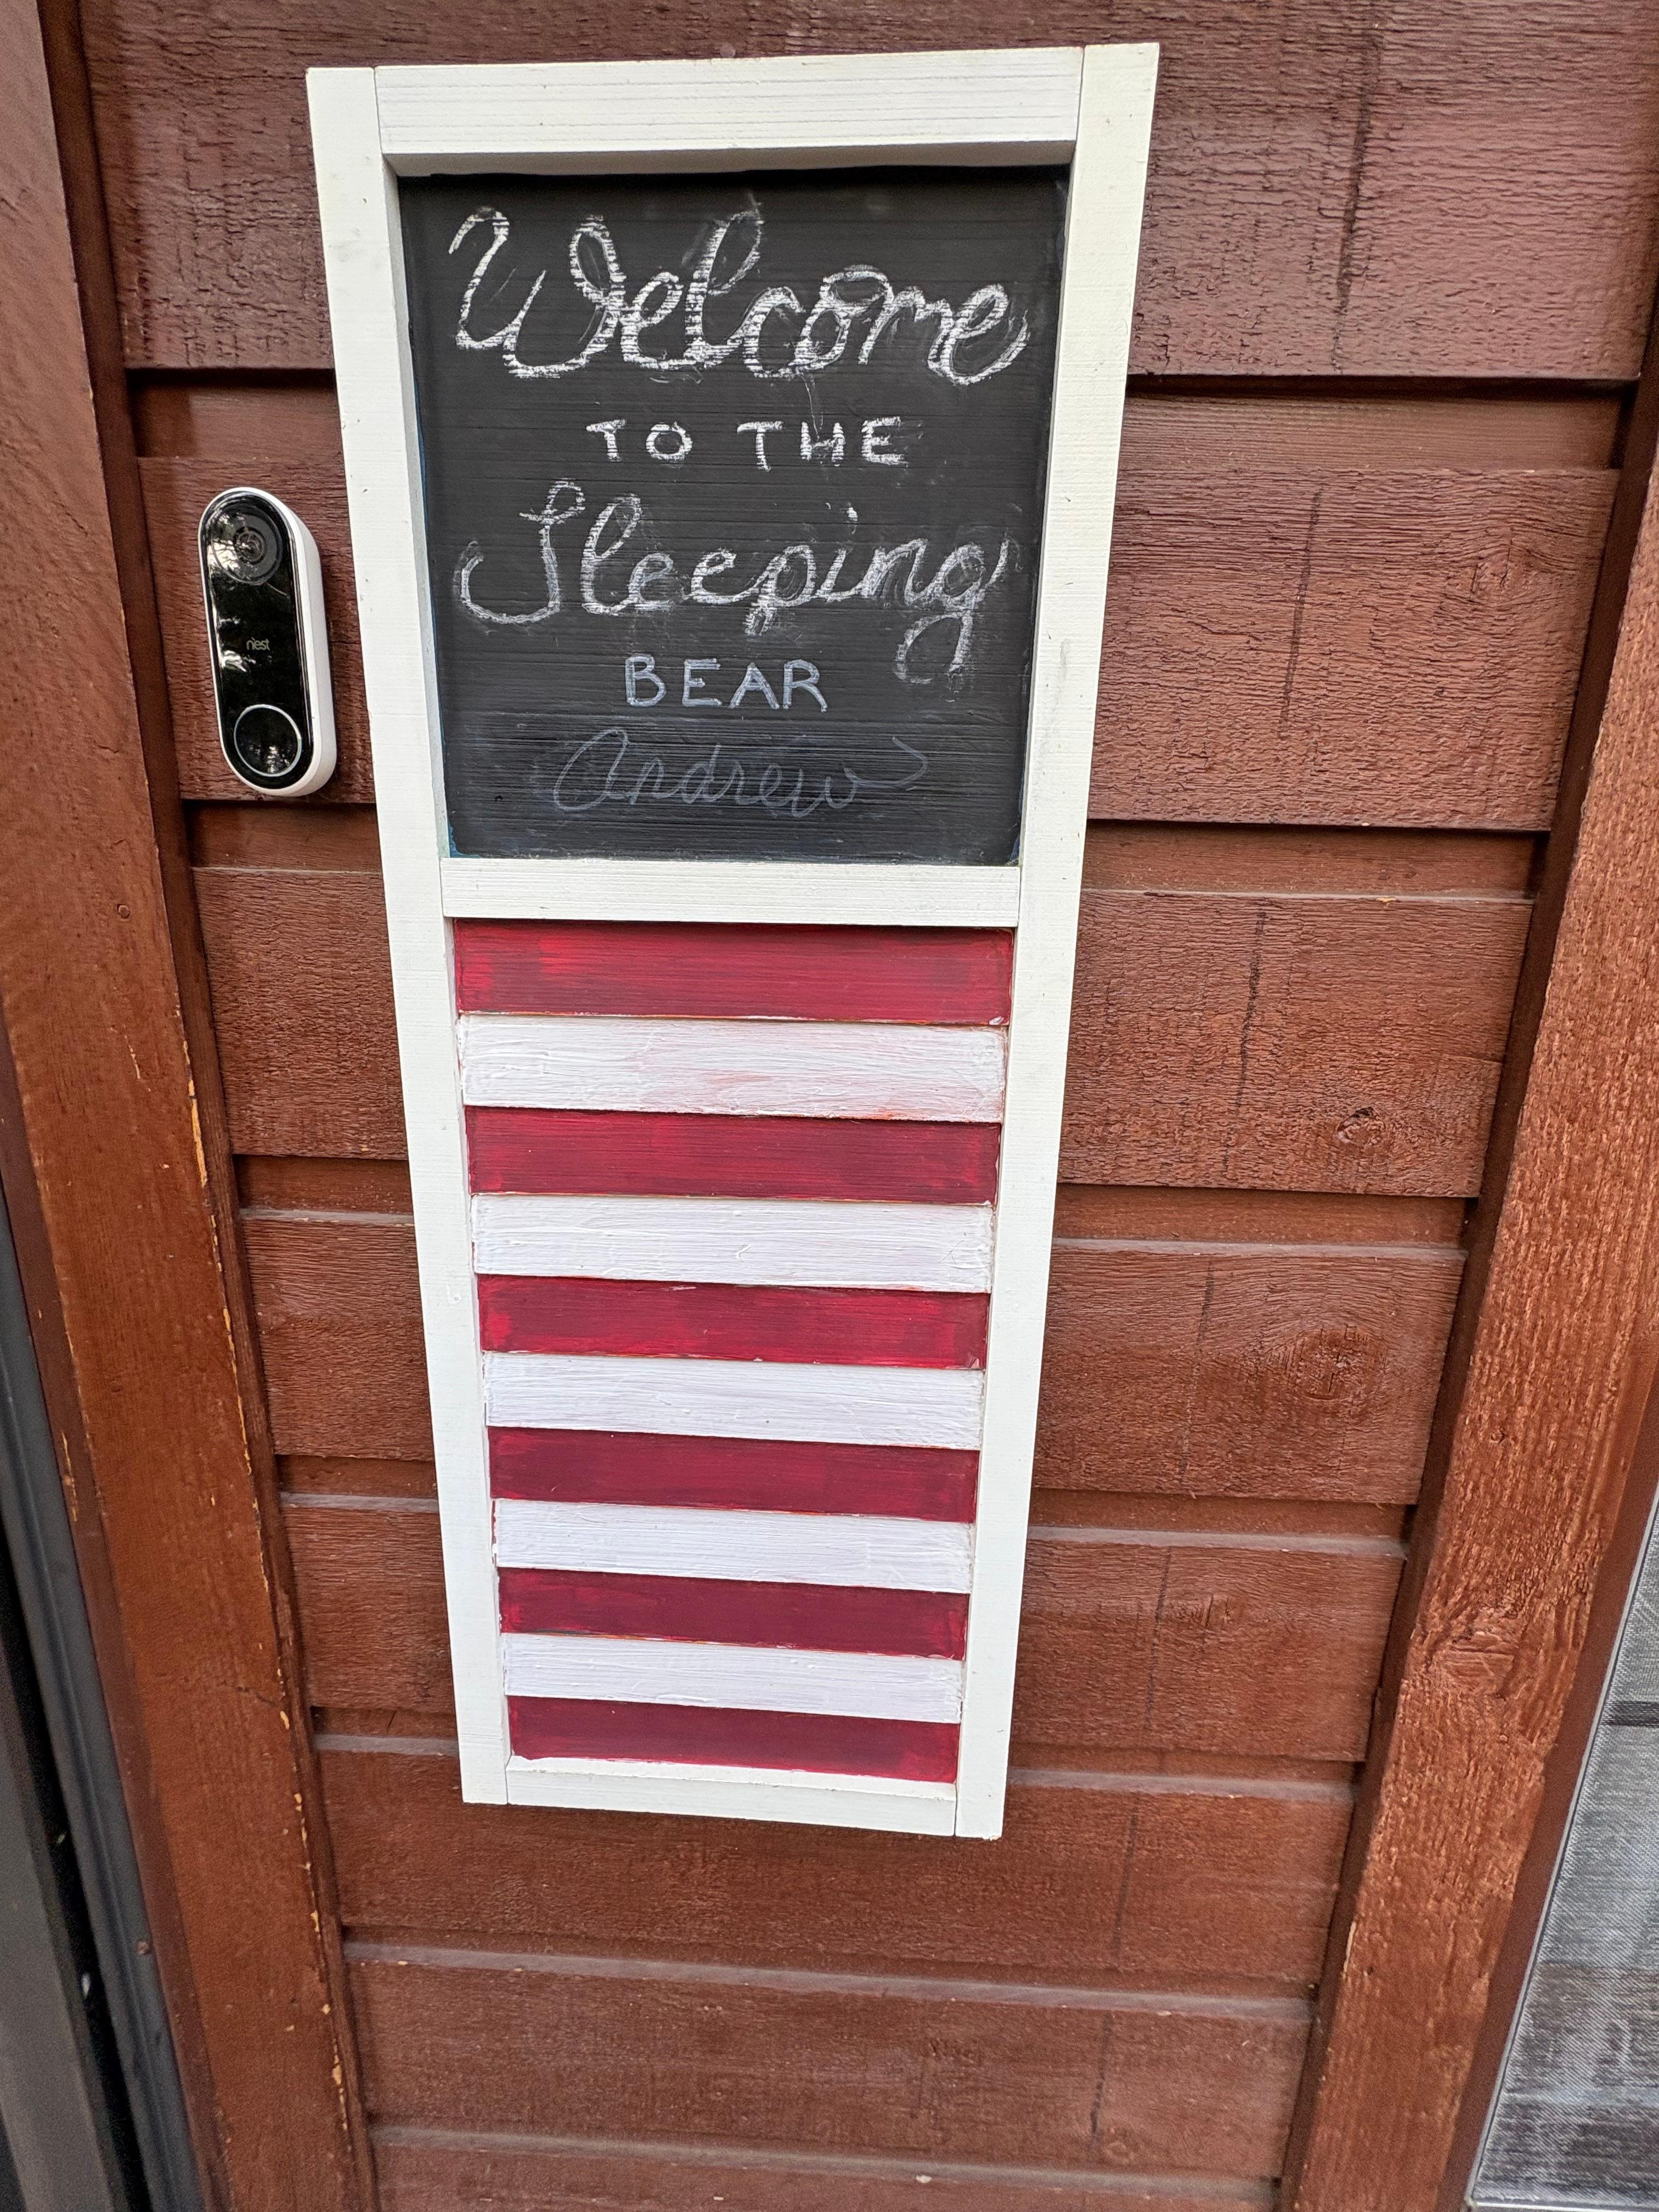 Welcome
TO THE
Sleeping
BEAR
Andrew
nest